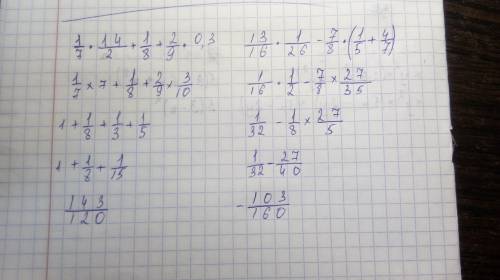 1/7 · 14/2 + 1/8 + 2/9 · 0,3
1/7 × 7 + 1/8 + 2/9 × 3/10
1 + 1/8 + 1/3 + 1/5
1 + 1/8 + 1/15
143/120
13/16 · 1/26 - 7/8 · (1/5 + 4/7)
1/16 · 1/2 - 7/8 × 27/35
1/32 - 1/8 × 27/5
1/32 - 27/40
- 103/160